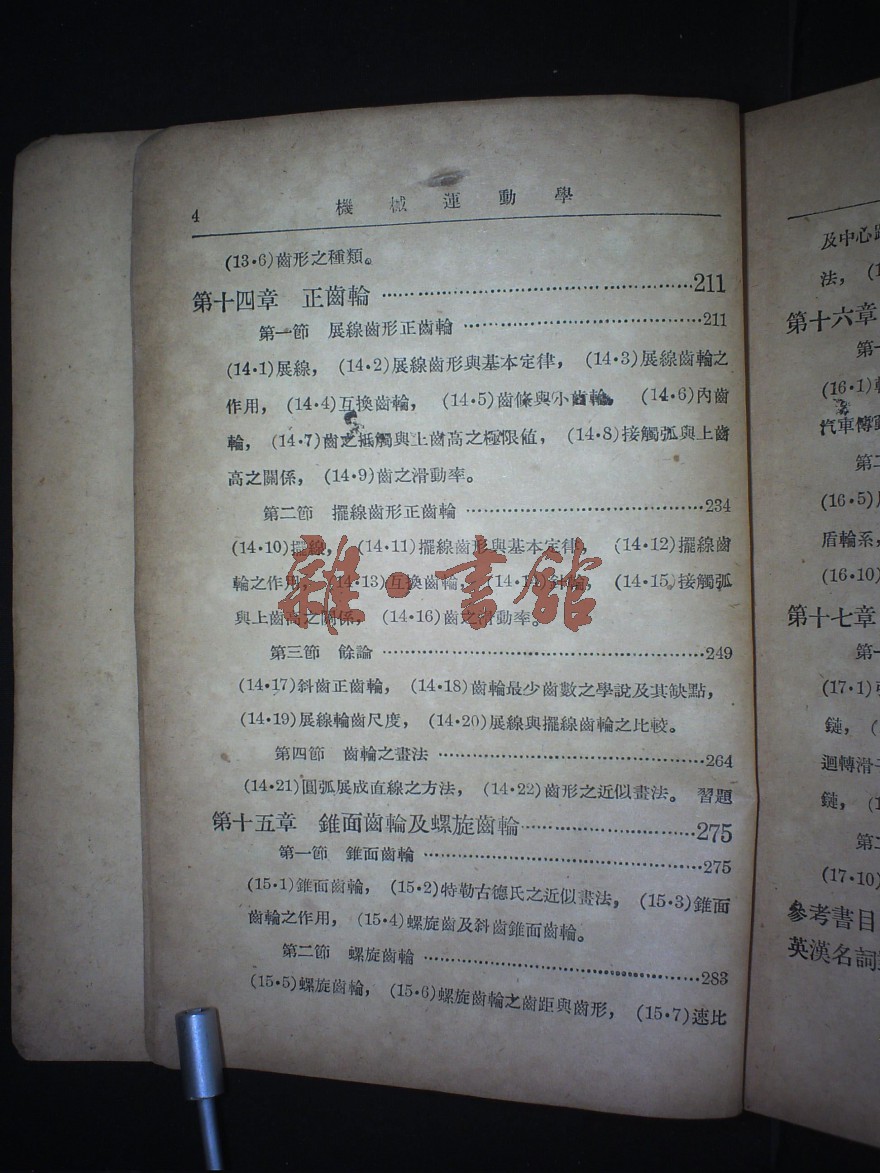 4
機械運動學
(13·6)齒形之種類。
第十四章 正齒輪……211
第一節 展線齒形正齒輪……211
(14·1)展線, (14·2)展線齒形與基本定律, (14·3)展線齒輪之
作用, (14·4)互換齒輪, (14·5)齒條與小齒輪, (14·6)內齒
輪, (14·7)齒之抵觸與上齒高之極限値, (14·8)接觸弧與上齒
高之關係, (14·9)齒之滑動率。
第二節 擺線齒形正齒輪……234
(14·10)擺線, (14·11)擺線齒形與基本定律, (14·12)擺線齒
輪之作用, (14·13)互換齒輪, (14·14)針輪, (14·15)接觸弧
與上齒高之關係, (14·16)齒之滑動率。
雜·書館
第三節 餘論……249
(14·17)斜齒正齒輪, (14·18)齒輪最少齒數之學說及其缺點,
(14·19)展線輪齒尺度, (14·20)展線與擺線齒輪之比較。
第四節 齒輪之畫法……264
(14·21)圓弧展成直線之方法, (14·22)齒形之近似畫法。 習題
第十五章 錐面齒輪及螺旋齒輪……275
第一節 錐面齒輪……275
(15·1)錐面齒輪, (15·2)特勒古德氏之近似畫法, (15·3)錐面
齒輪之作用, (15·4)螺旋齒及斜齒錐面齒輪。
第二節 螺旋齒輪……283
(15·5)螺旋齒輪, (15·6)螺旋齒輪之齒距與齒形, (15·7)速比
及中心距
法, (1
第十六章
第一
(16·1)
汽車傳動
第二
(16·5)
盾輪系,
(16·10)
第十七章
第一
(17·1)
鏈, (
迴轉滑子
鏈, (1
第二
(17·10)
參考書目
英漢名詞